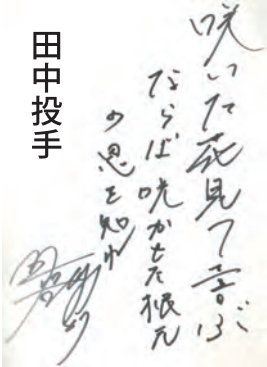 咲いた花見て喜ぶ
ならば咲かせた根元
の恩を知れ
田中投手